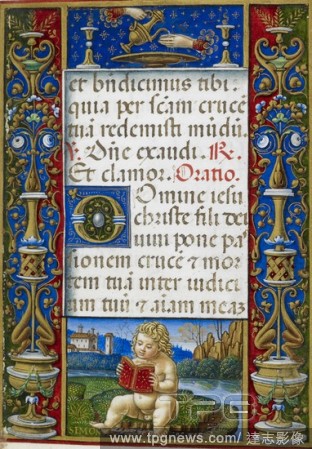 et bn̄dicimus tibi.
quia per scām cruce
tuā redemisti mūdū.
V. Dn̄e exaudi. R.
Et clamor. Oratio.
Domine iesu
christe fili dei
uiui pone pas
sionem crucē & mor
tem tuā inter iudici
um tuū & aīam meaȝ
TPG
www.tpgnews.com/達志影像